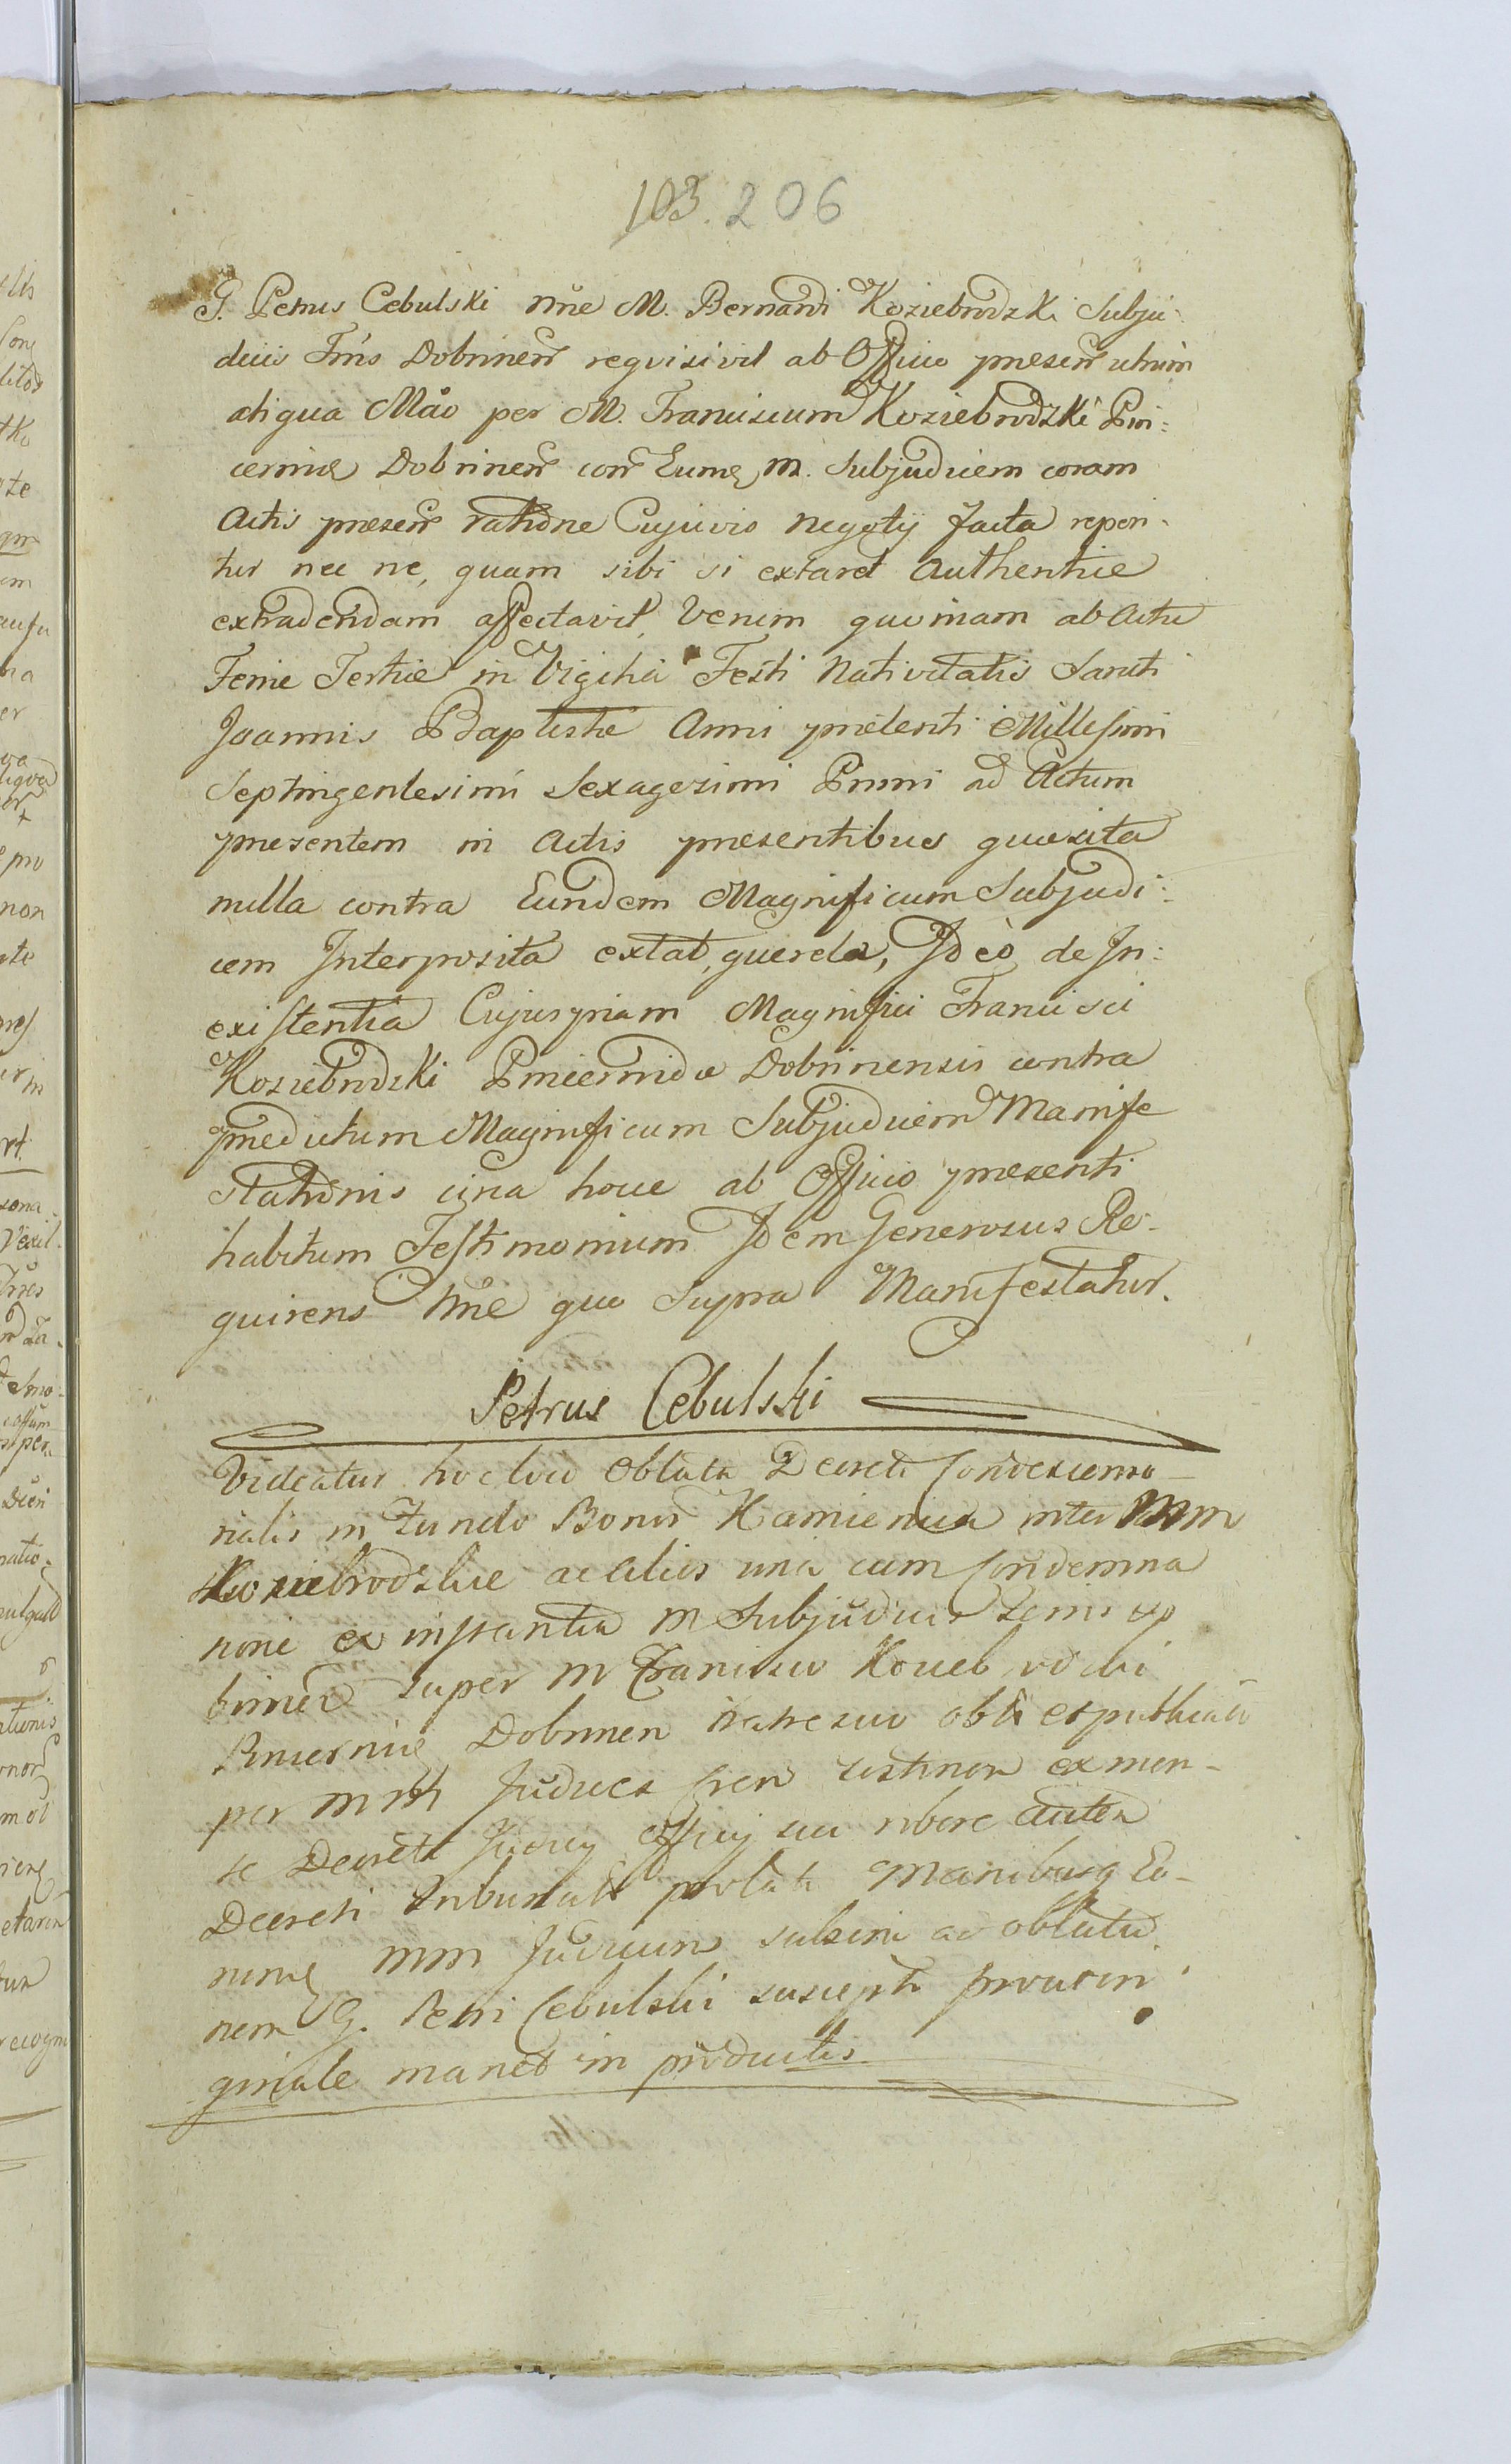 103. 206
G. Petrus Cebulski nñe M. Bernardi Koziebrodzki Subju:
dicis Trr̃is Dobrinen̄ requisivit ab Officio præsen̄ utrum
aliqua Mão per M. Franciscum Koziebrodzki Pin:
cernã Dobrinen̄ con̄ Eumq̃ M. Subjudicem coram
Actis præsen̄ ratione Cujusvis negotij facta reperi-
tur nec ne, quam sibi si extaret Authentice
extradendam affectavit, Verum quoniam ab Actu
Feriæ Tertiæ in Vigilia Festi Nativitatis Sancti
Joannis Baptistæ Anni præsenti Millesimi
Septingentesimi Sexagesimi Primi ad Actum
præsentem in Actis præsentibus quæsita
nulla contra Eundem Magnificum Subjudi:
cem Interposita extat, querela, Ideo de In:
existentia Cujuspiam Magnifici Francisci
Koziebrodzki Pincernidæ Dobrinensis contra
prædictum Magnificum Subjudicem Manife
stationis circa hocce ab Officio præsenti
habitum Testimonium Idem Generosus Re-
quirens nñe quo Supra Manifestatur.
Petrus Cebulski
Videatur hoc loco Oblata Decreti Condescenso-
rialis in Fundo Bonor̃ Kamienica inter Mm
Koziebrodzkie ac alios una cum Condemna
tione ex instantia M Subjudicis Terris
super M Francisco Koziebrodzki
Pincernidæ Dobrinen fratre suo et publicati
per MM Judices
se Decreti officij sui robore
Decreti Tribunalis prolati Manibusq̃ Eo-
rumq̃ MM Judicum subscri ad oblatã
nem G. Petri Cebulski suscepti prout in ori
ginale manet in productis